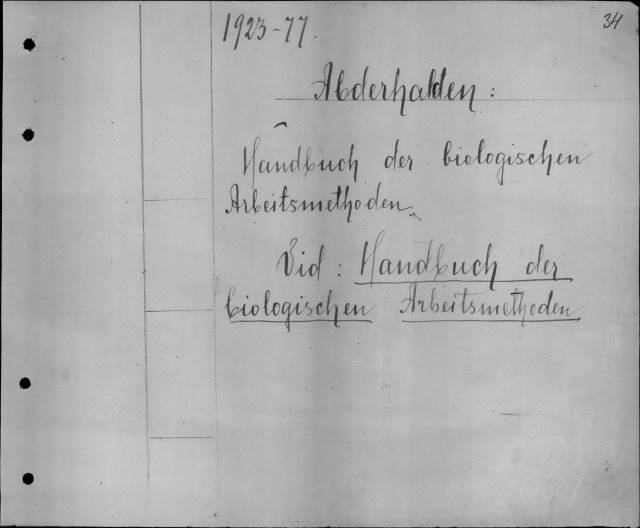 1923-77.
34
Abderhalden:
Handbuch der biologischen
Arbeitsmethoden.
Vid: Handbuch der
biologischen Arbeitsmethoden